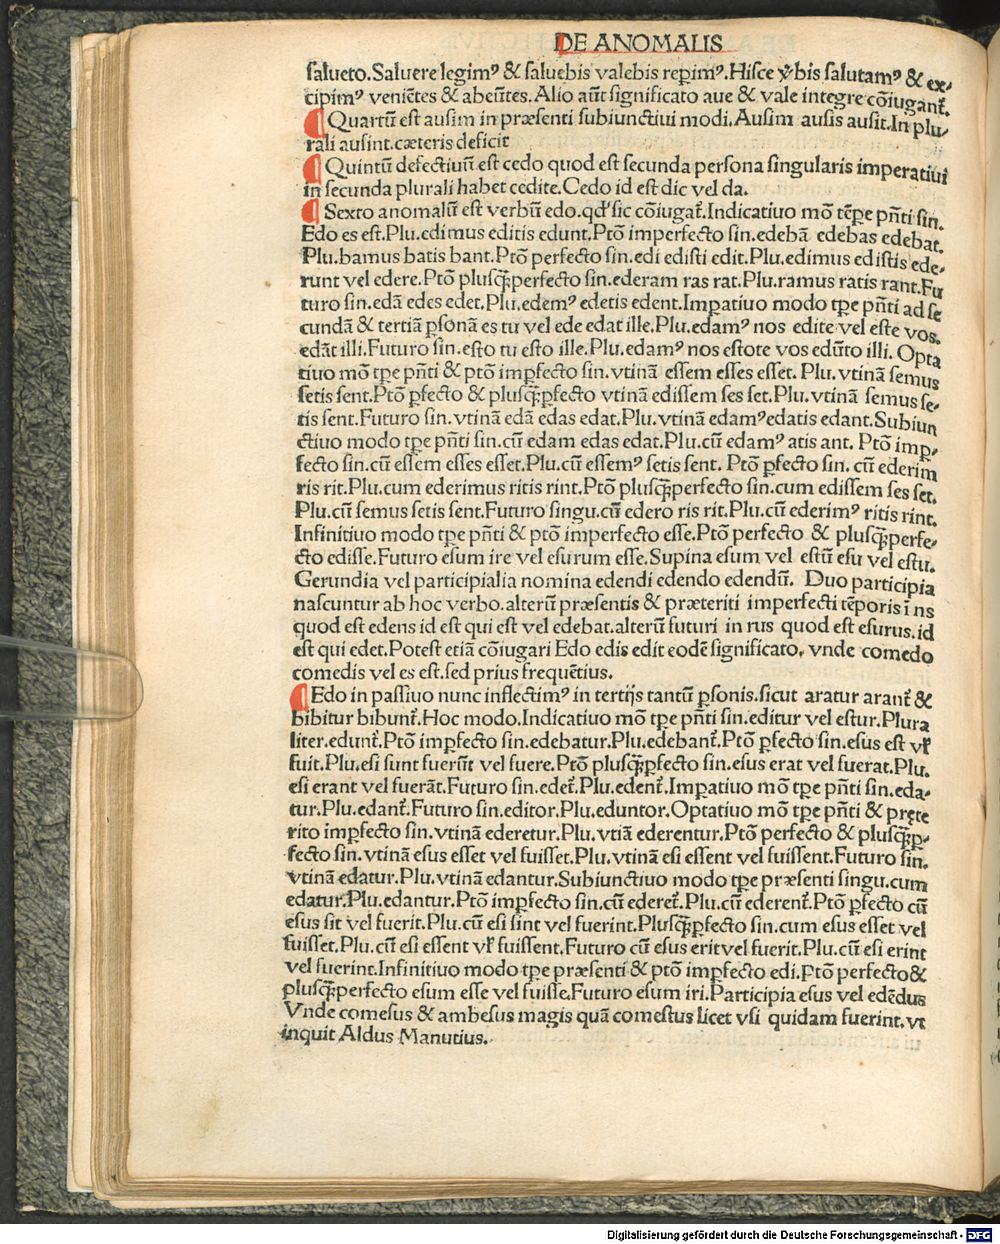 DE ANOMALIS
salueto.Saluere legimꝰ & saluebis valebis reꝑimꝰ.Hisce ꝟbis salutamꝰ & ex⸗
cipimꝰ veniẽtes & abeũtes.Alio aũt significato aue & vale integre cõiugant᷑.
¶ Quartũ est ausim in præsenti subiunctiui modi.Ausim ausis ausit.In plu⸗
rali ausint.cæteris deficit
¶ Quintũ defectiuũ est cedo quod est secunda persona singularis imperatiui
in secunda plurali habet cedite.Cedo id est dic vel da.
¶ Sexto anomalũ est verbũ edo.qd' sic cõiugat᷑.Indicatiuo mõ tẽꝑe pñti sin.
Edo es est.Plu.edimus editis edunt.Ptõ imperfecto sin.edebã edebas edebat.
Plu.bamus batis bant.Ptõ perfecto sin.edi edisti edit.Plu.edimus edistis ede⸗
runt vel edere.Ptõ plusq̃ꝫperfecto sin.ederam ras rat.Plu.ramus ratis rant.Fu
turo sin.edã edes edet.Plu.edemꝰ edetis edent.Imꝑatiuo modo tꝑe pñti ad se
cundã & tertiã ꝑsonã es tu vel ede edat ille.Plu.edamꝰ nos edite vel este vos.
edãt illi.Futuro sin.esto tu esto ille.Plu.edamꝰ nos estote vos edũto illi. Opta
tiuo mõ tꝑe pñti & ptõ imꝑfecto sin.vtinã essem esses esset. Plu.vtinã semus
setis sent.Ptõ ꝑfecto & plusq̃ꝫꝑfecto vtinã edissem ses set.Plu.vtinã semus se⸗
tis sent.Futuro sin.vtinã edã edas edat.Plu.vtinã edamꝰedatis edant.Subiun
ctiuo modo tꝑe pñti sin.cũ edam edas edat.Plu.cũ edamꝰ atis ant. Ptõ imꝑ⸗
fecto sin.cũ essem esses esset.Plu.cũ essemꝰ setis sent. Ptõ ꝑfecto sin. cũ ederim
ris rit.Plu.cum ederimus ritis rint.Ptõ plusq̃ꝫperfecto sin.cum edissem ses set.
Plu.cũ semus setis sent.Futuro singu.cũ edero ris rit.Plu.cũ ederimꝰ ritis rint.
Infinitiuo modo tꝑe pñti & ptõ imperfecto esse.Ptõ perfecto & plusq̃ꝫperfe⸗
cto edisse.Futuro esum ire vel esurum esse.Supina esum vel estũ esu vel estu.
Gerundia vel participialia nomina edendi edendo edendũ. Duo participia
nascuntur ab hoc verbo.alterũ præsentis & præteriti imperfecti tẽporis ĩ ns
quod est edens id est qui est vel edebat.alterũ futuri in rus quod est esurus.id
est qui edet.Potest etiã cõiugari Edo edis edit eodẽ significato. vnde comedo
comedis vel es est.sed prius frequẽtius.
¶ Edo in passiuo nunc inflectimꝰ in tertijs tantũ ꝑsonis.sicut aratur arant᷑ &
bibitur bibunt᷑.Hoc modo.Indicatiuo mõ tꝑe pñti sin.editur vel estur.Plura
liter.edunt᷑.Ptõ imꝑfecto sin.edebatur.Plu.edebant᷑.Ptõ ꝑfecto sin.esus est vł
fuit.Plu.esi sunt fuerũt vel fuere.Ptõ plusq̃ꝫꝑfecto sin.esus erat vel fuerat.Plu.
esi erant vel fuerãt.Futuro sin.edet᷑.Plu.edent᷑.Imꝑatiuo mõ tꝑe pñti sin.eda⸗
tur.Plu.edant᷑.Futuro sin.editor.Plu.eduntor.Optatiuo mõ tꝑe pñti & pręte
rito imꝑfecto sin.vtinã ederetur.Plu.vtiã ederentur.Ptõ perfecto & plusq̃ꝫꝑ⸗
fecto sin.vtinã esus esset vel fuisset.Plu.vtinã esi essent vel fuissent.Futuro sin.
vtinã edatur.Plu.vtinã edantur.Subiunctiuo modo tꝑe præsenti singu.cum
edatur.Plu.edantur.Ptõ imꝑfecto sin.cũ ederet᷑.Plu.cũ ederent᷑.Ptõ ꝑfecto cũ
esus sit vel fuerit.Plu.cũ esi sint vel fuerint.Plusq̃ꝫꝑfecto sin.cum esus esset vel
fuisset.Plu.cũ esi essent vł fuissent.Futuro cũ esus erit vel fuerit.Plu.cũ esi erint
vel fuerint.Infinitiuo modo tꝑe præsenti & ptõ imꝑfecto edi.Ptõ perfecto &
plusq̃ꝫperfecto esum esse vel fuisse.Futuro esum iri.Participia esus vel edẽdus
Vnde comesus & ambesus magis quã comestus licet vsi quidam fuerint.vt
inquit Aldus Manutius.
Digitalisierung gefördert durch die Deutsche Forschungsgemeinschaft - DFG